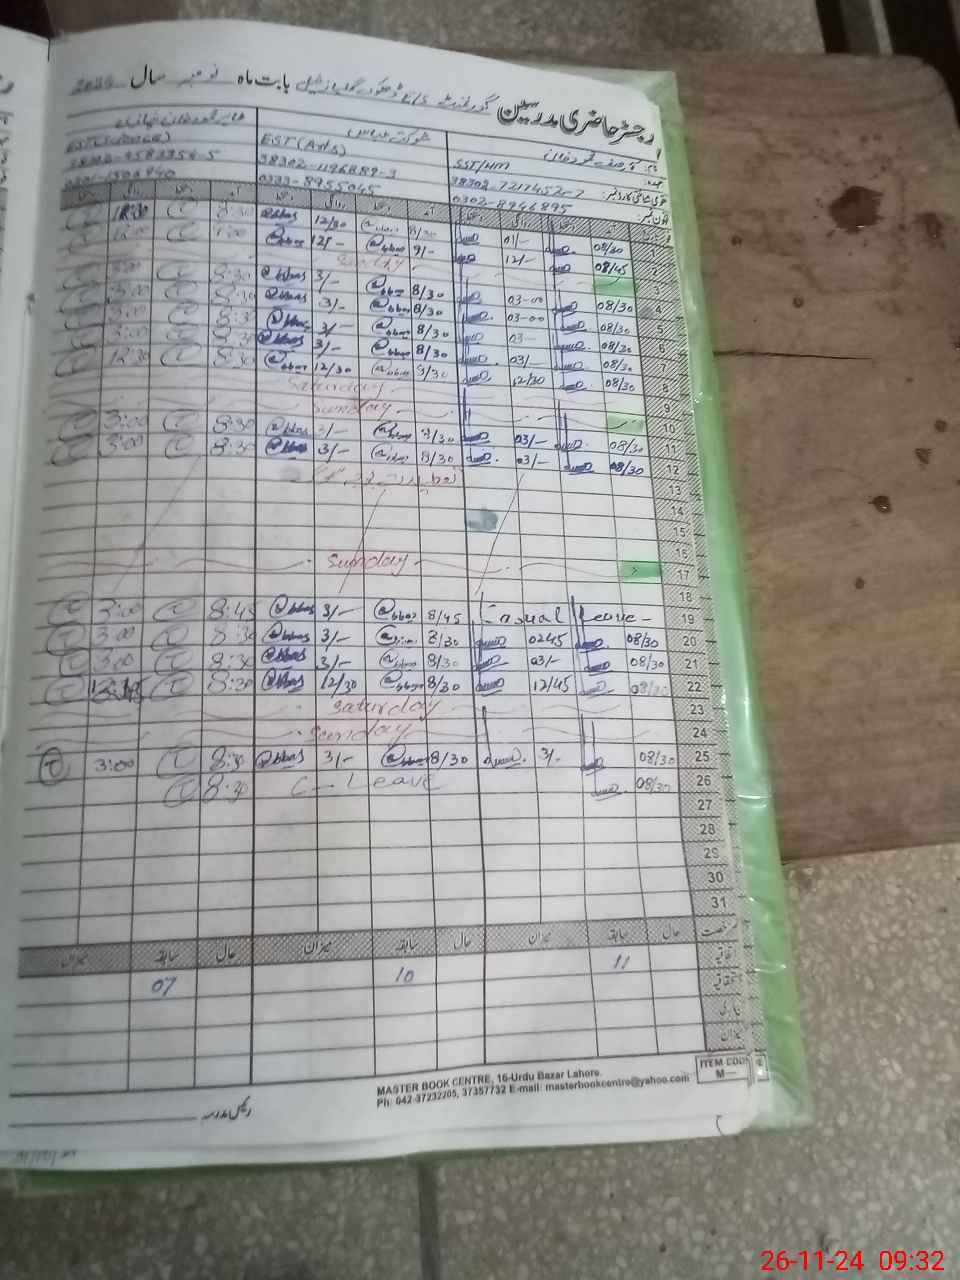 رجسٹر حاضری مدرسین گورنمنٹ E/S بابت ماہ نومبر سال
شوکت عباس
SST/HM EST(Arts)
38302-7217452-7 38302-1196889-3 38302-9583954-5
0302-8946895 0333-8955045 0301-1506940
1 08/30 01/- @bbas 8/30 12/30 @bbas 8:30
2 08/45 12/- @bbas 9/- 12/- @bbas 12:00
3 Sunday
4 08/30 03-00 @bbas 8/30 3/- @bbas 8:30 3:00
5 08/30 03-00 @bbas 8/30 3/- @bbas 8:30 3:00
6 08/30 03- @bbas 8/30 3/- @bbas 8:30 3:00
7 08/30 03/- @bbas 8/30 3/- @bbas 8:30 3:00
8 08/30 12/30 @bbas 8/30 12/30 @bbas 8:30 12:30
9 Saturday
10 Sunday
11 08/30 03/- @bbas 8/30 3/- @bbas 8:30 3:00
12 08/30 03/- @bbas 8/30 3/- @bbas 8:30 3:00
13
14
15
16
17 Sunday
18
19 Casual Leave - @bbas 8/45 3/- @bbas 8:45 3:00
20 08/30 0245 @bbas 8/30 3/- @bbas 8:30 3:00
21 08/30 03/- @bbas 8/30 3/- @bbas 8:30 3:00
22 08/30 12/45 @bbas 8/30 12/30 @bbas 8:30
23 Saturday
24 Sunday
25 08/30 3/- @bbas 8/30 3/- @bbas 8:30 3:00
26 08/30 C-Leave 8:30
27
28
29
30
31
رخصت حال سابقہ میزان حال سابقہ میزان حال سابقہ میزان
اتفاقیہ 11 10 07
استحقاقیہ
بیماری
میزان
ITEM CODE
M—
MASTER BOOK CENTRE, 16-Urdu Bazar Lahore.
Ph: 042-37232205, 37357732 E-mail: masterbookcentre@yahoo.com
رئیس مدرسہ
26-11-24 09:32